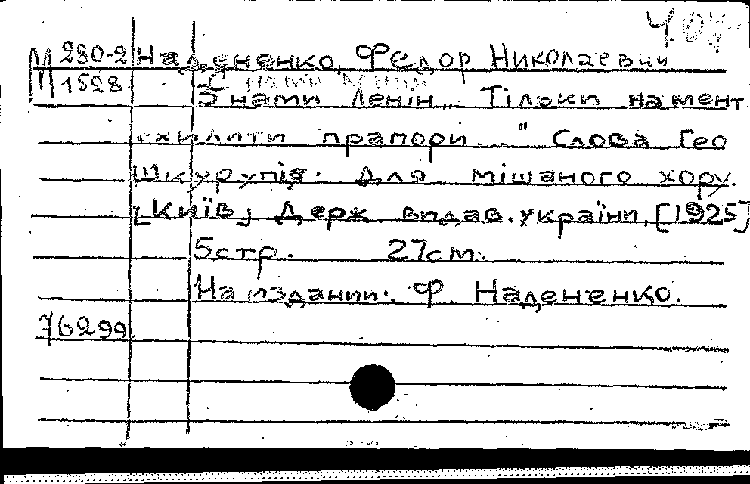 М 280-2 Надененко, Федор Николаевич
М 1528 З нами Ленін „Тільки на мент
схилити прапори..." Слова Гео
Шкурупія. Для мішаного хору.
[Київ], Держ. видав. України, [1925]
5стр. 27см.
На издании: Ф. Надененко.
76299